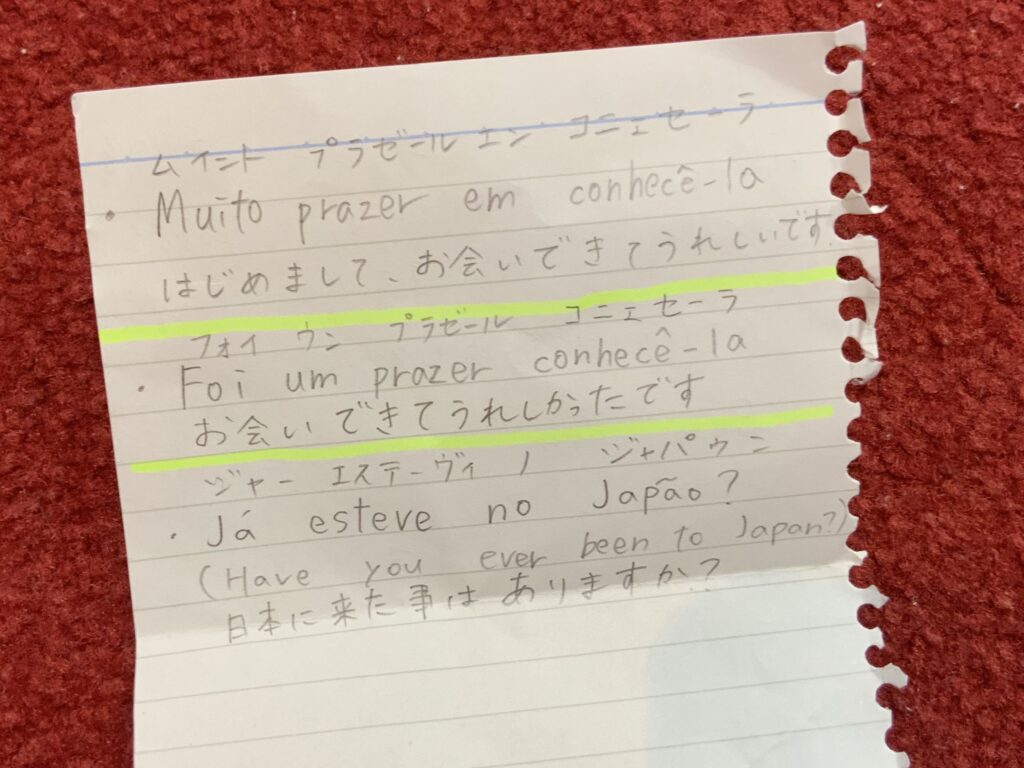 ムイント プラゼール エン コニェセーラ
・Muito prazer em conhecê-la
はじめまして、お会いできてうれしいです.
フォイ ウン プラゼール コニェセーラ
・Foi um prazer conhecê-la
お会いできてうれしかったです
ジャー エステーヴィ ノ ジャパウン
・Já esteve no Japão?
(Have you ever been to Japan?)
日本に来た事はありますか?